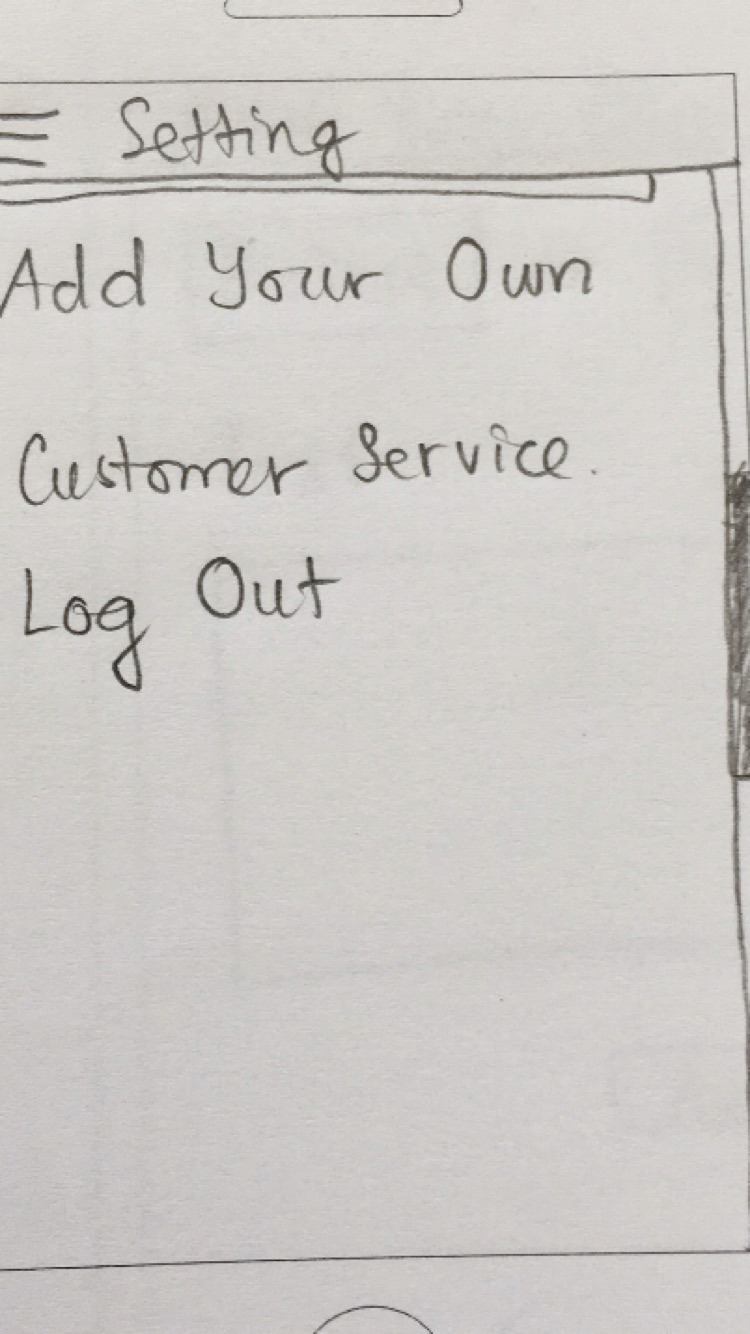 Setting
Add Your Own
Customer Service.
Log Out